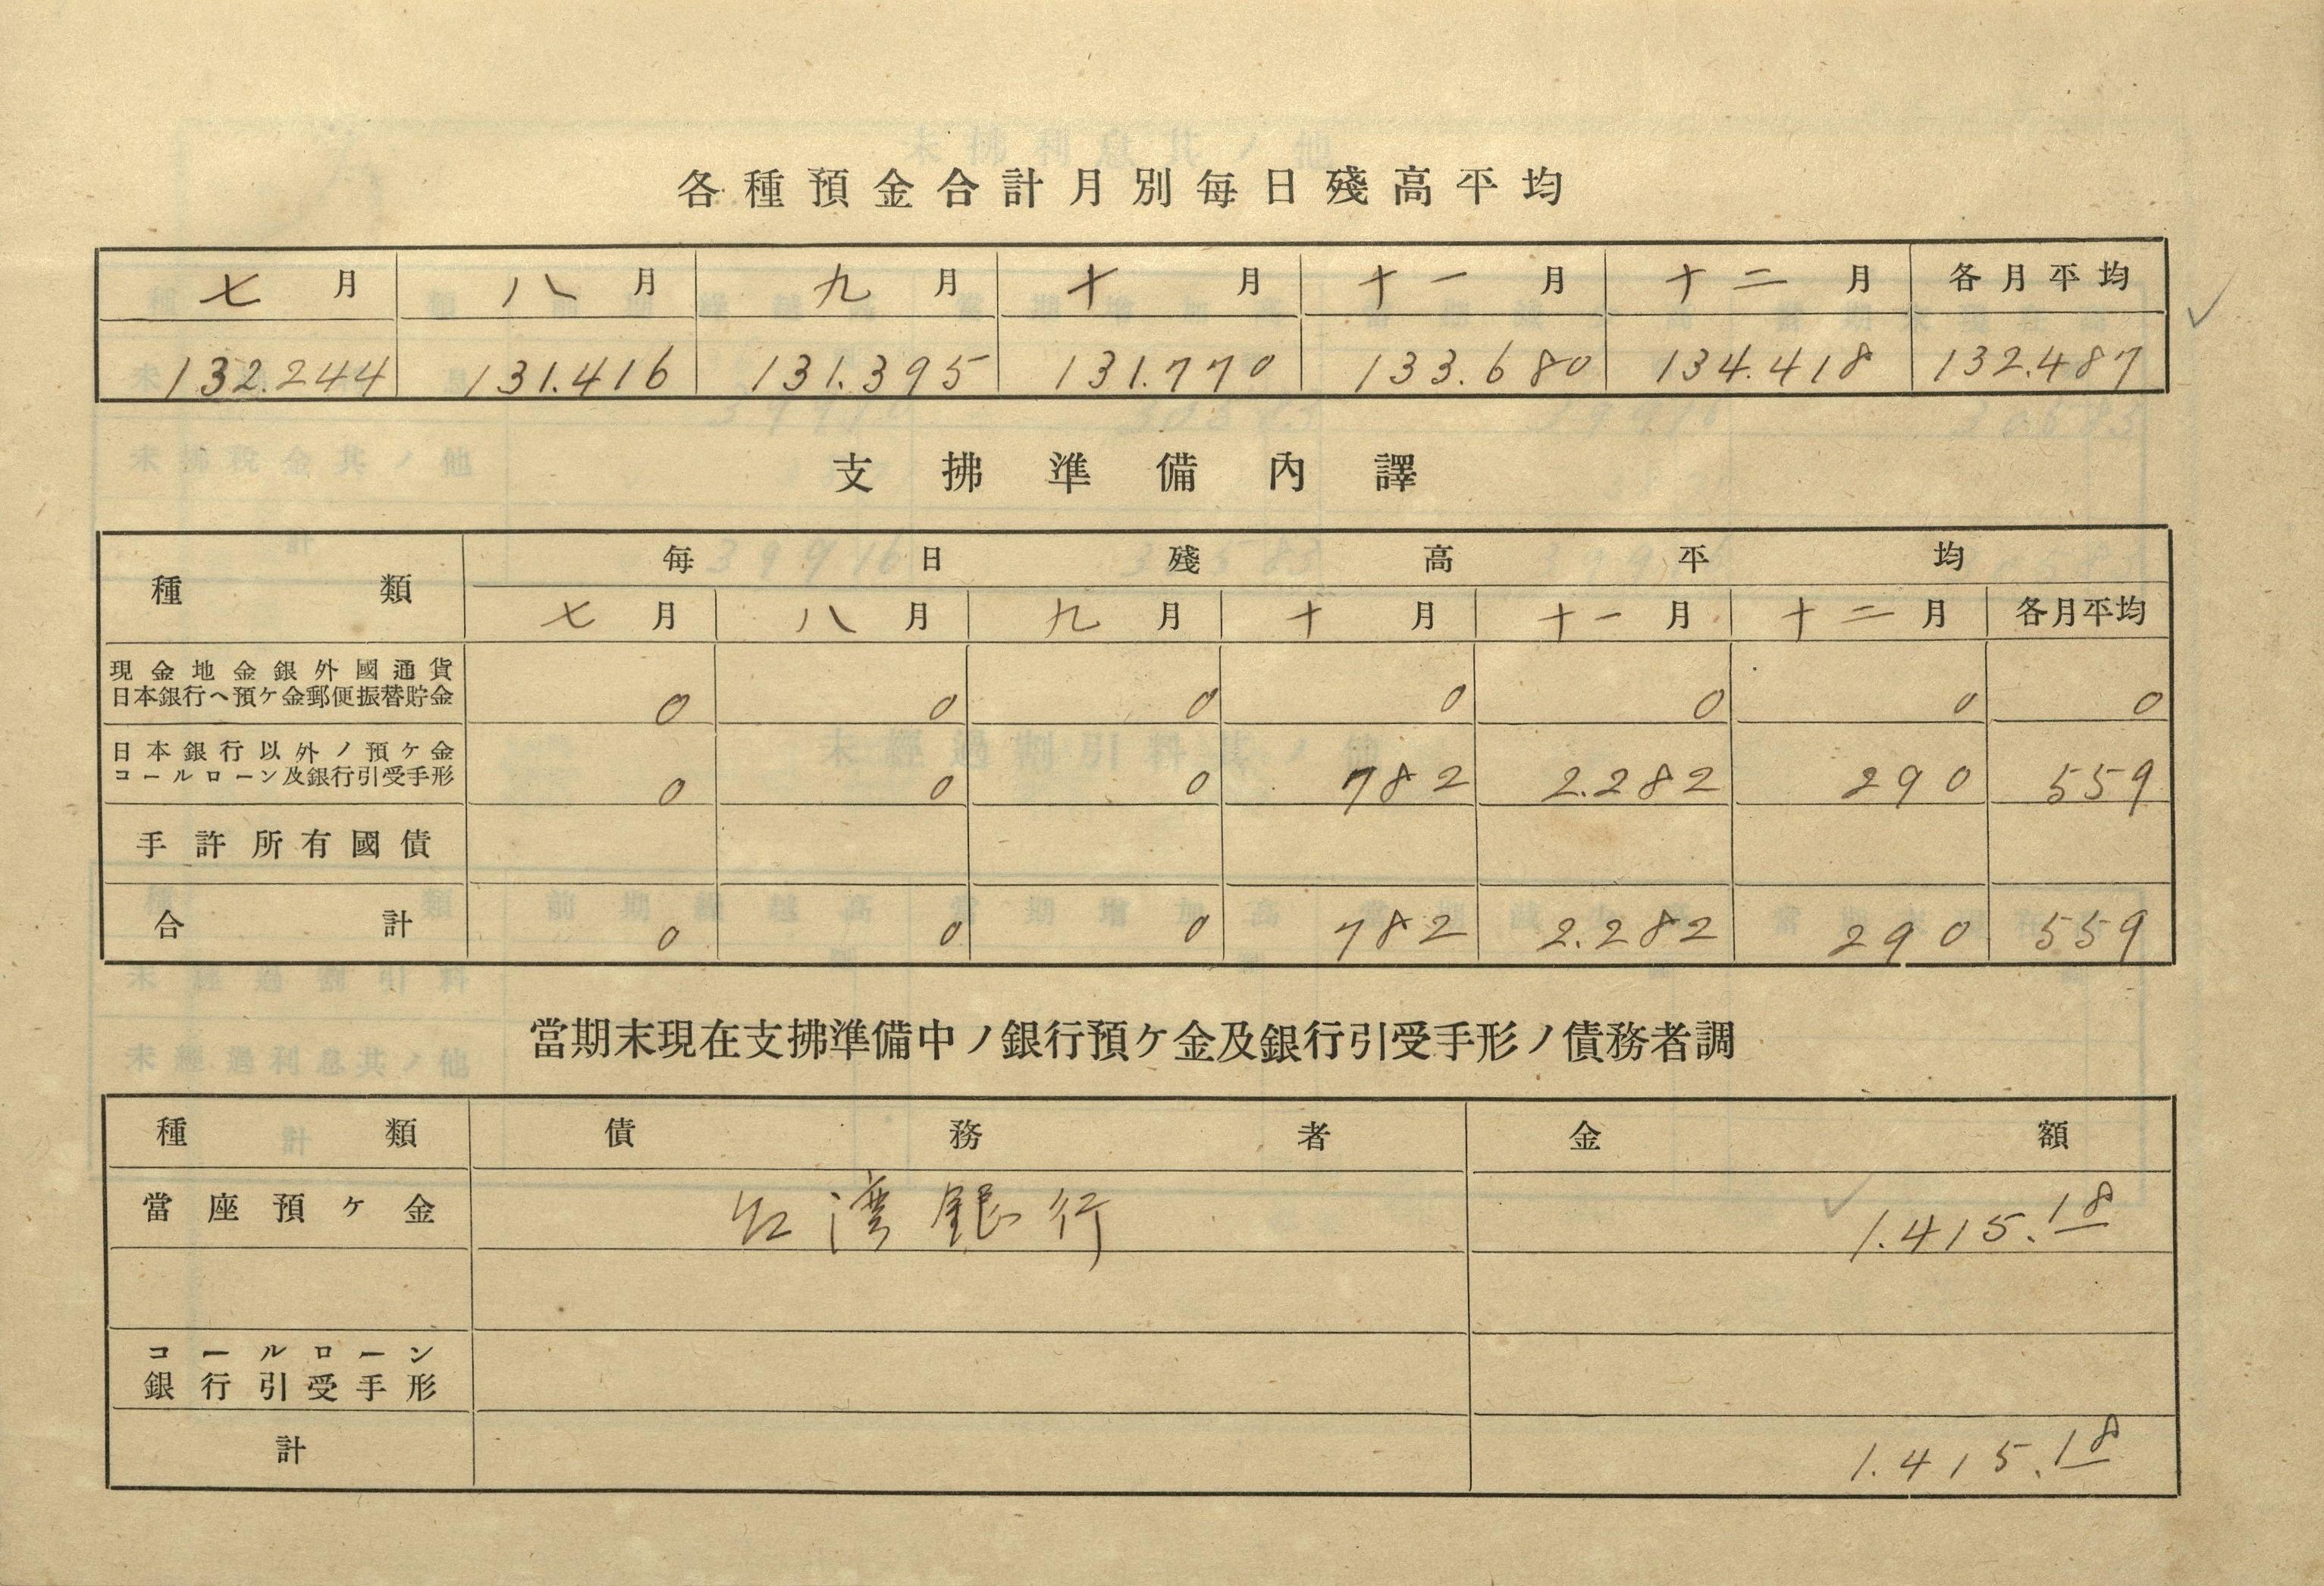 各種預金合計月別每日殘高平均
七月 八月 九月 十月 十一月 十二月 各月平均
132.244 131.416 131.395 131.770 133.680 134.418 132.487
支拂準備內譯
種類 每日殘高平均
七月 八月 九月 十月 十一月 十二月 各月平均
現金地金銀外國通貨
日本銀行ヘ預ケ金郵便振替貯金 0 0 0 0 0 0 0
日本銀行以外ノ預ケ金
コールローン及銀行引受手形 0 0 0 782 2.282 290 559
手許所有國債
合計 0 0 0 782 2.282 290 559
當期末現在支拂準備中ノ銀行預ケ金及銀行引受手形ノ債務者調
種類 債務者 金額
當座預ケ金 台湾銀行 1.415.18
コールローン
銀行引受手形
計 1.415.18